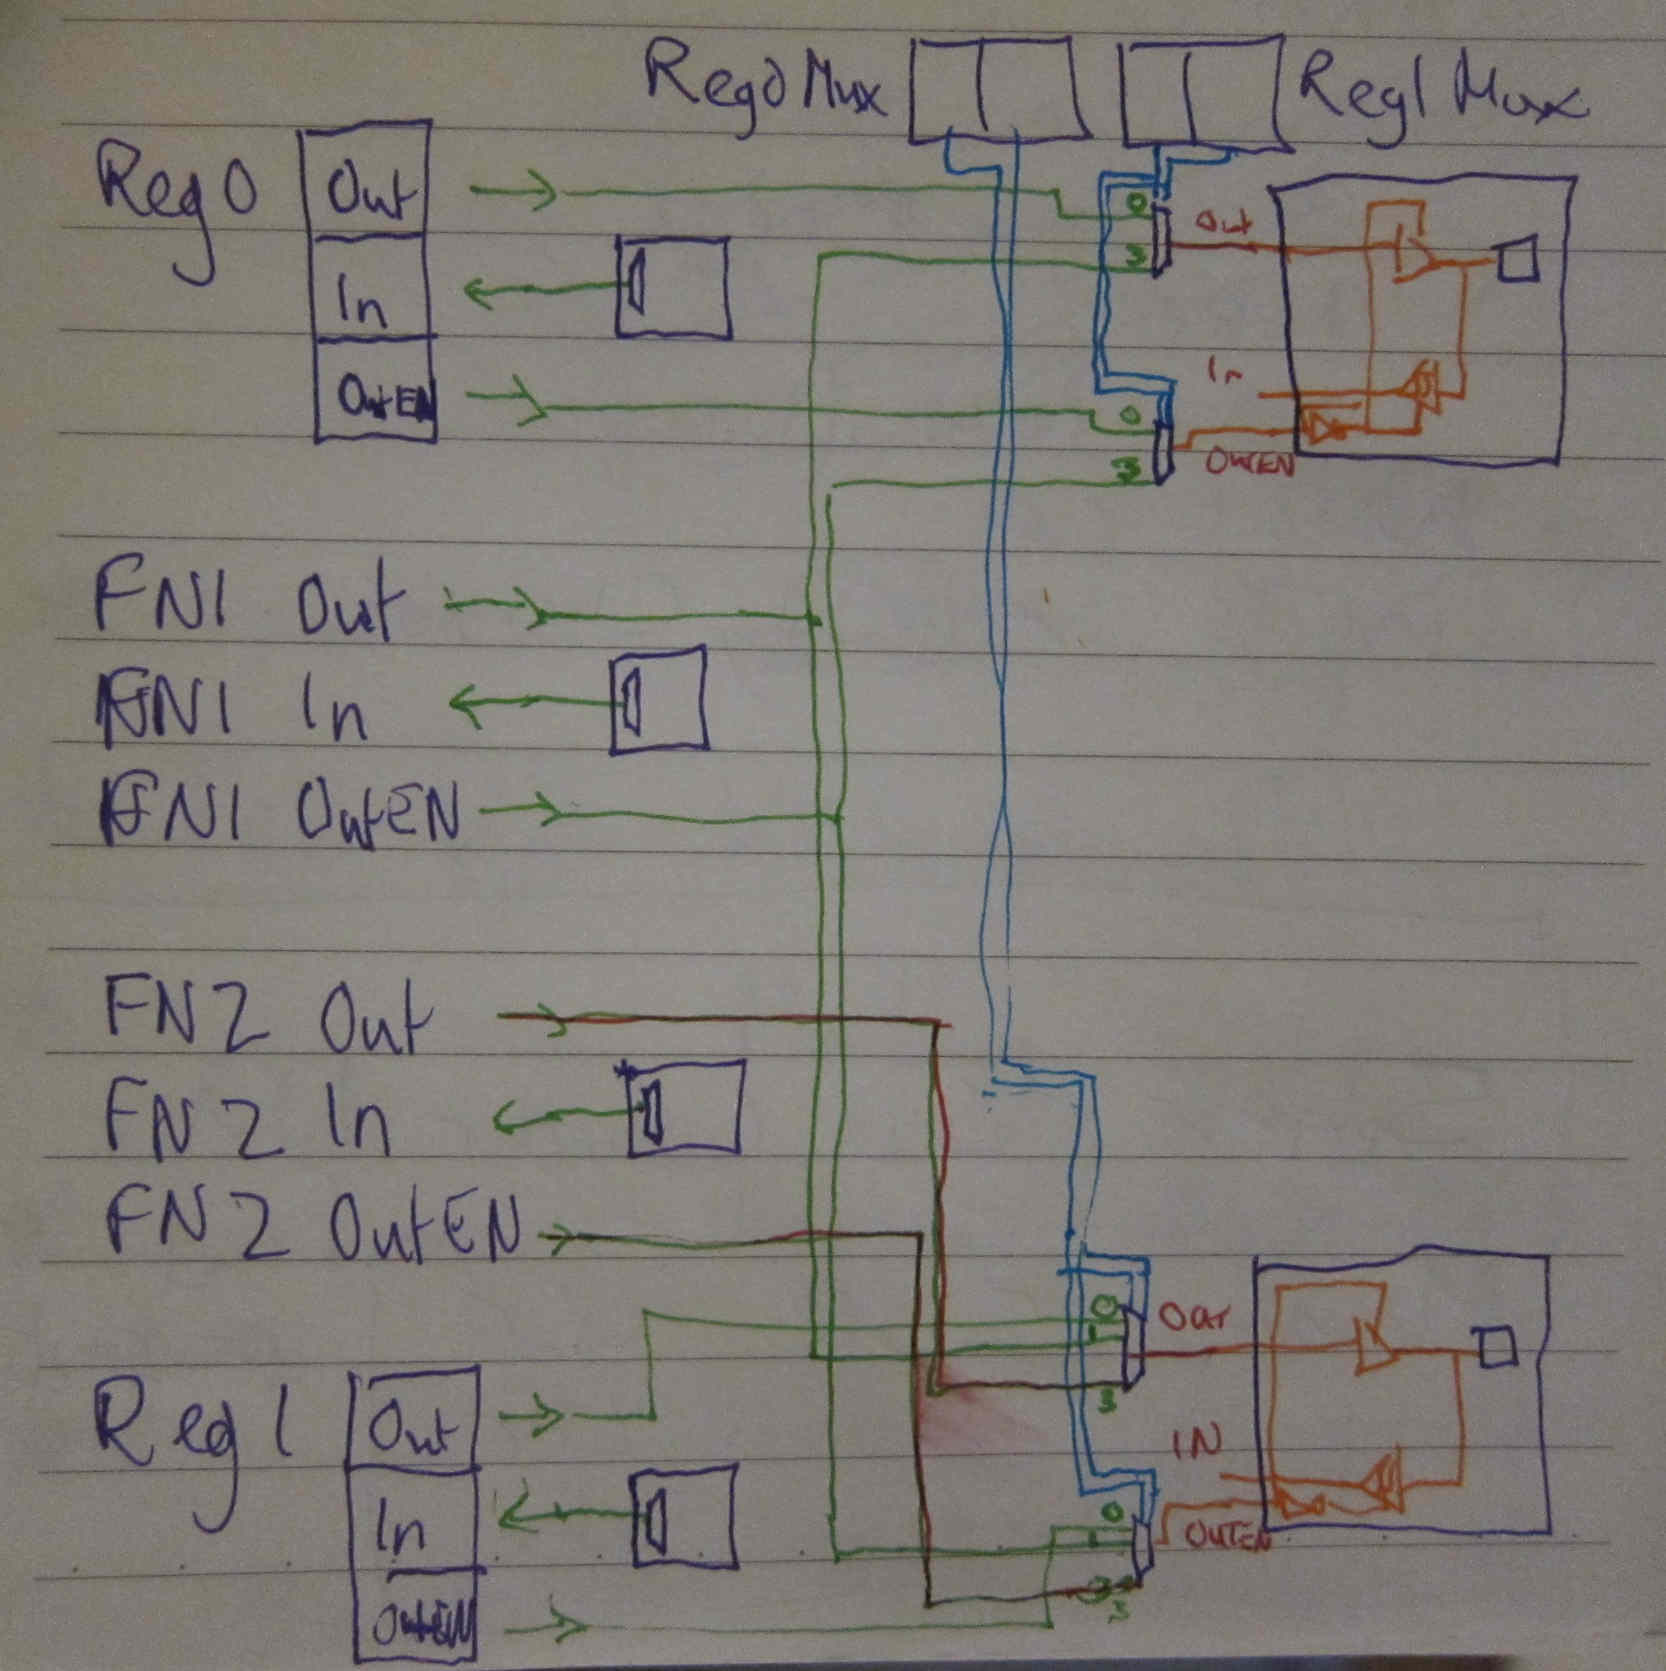 Reg0 Mux
Reg1 Mux
Reg0
Out
In
OutEN
0
3
Out
In
0
3
OutEN
FN1 Out
FN1 In
FN1 OutEN
FN2 Out
FN2 In
FN2 OutEN
0
1
3
Out
IN
Reg1
Out
In
OutEN
0
1
3
OUTEN